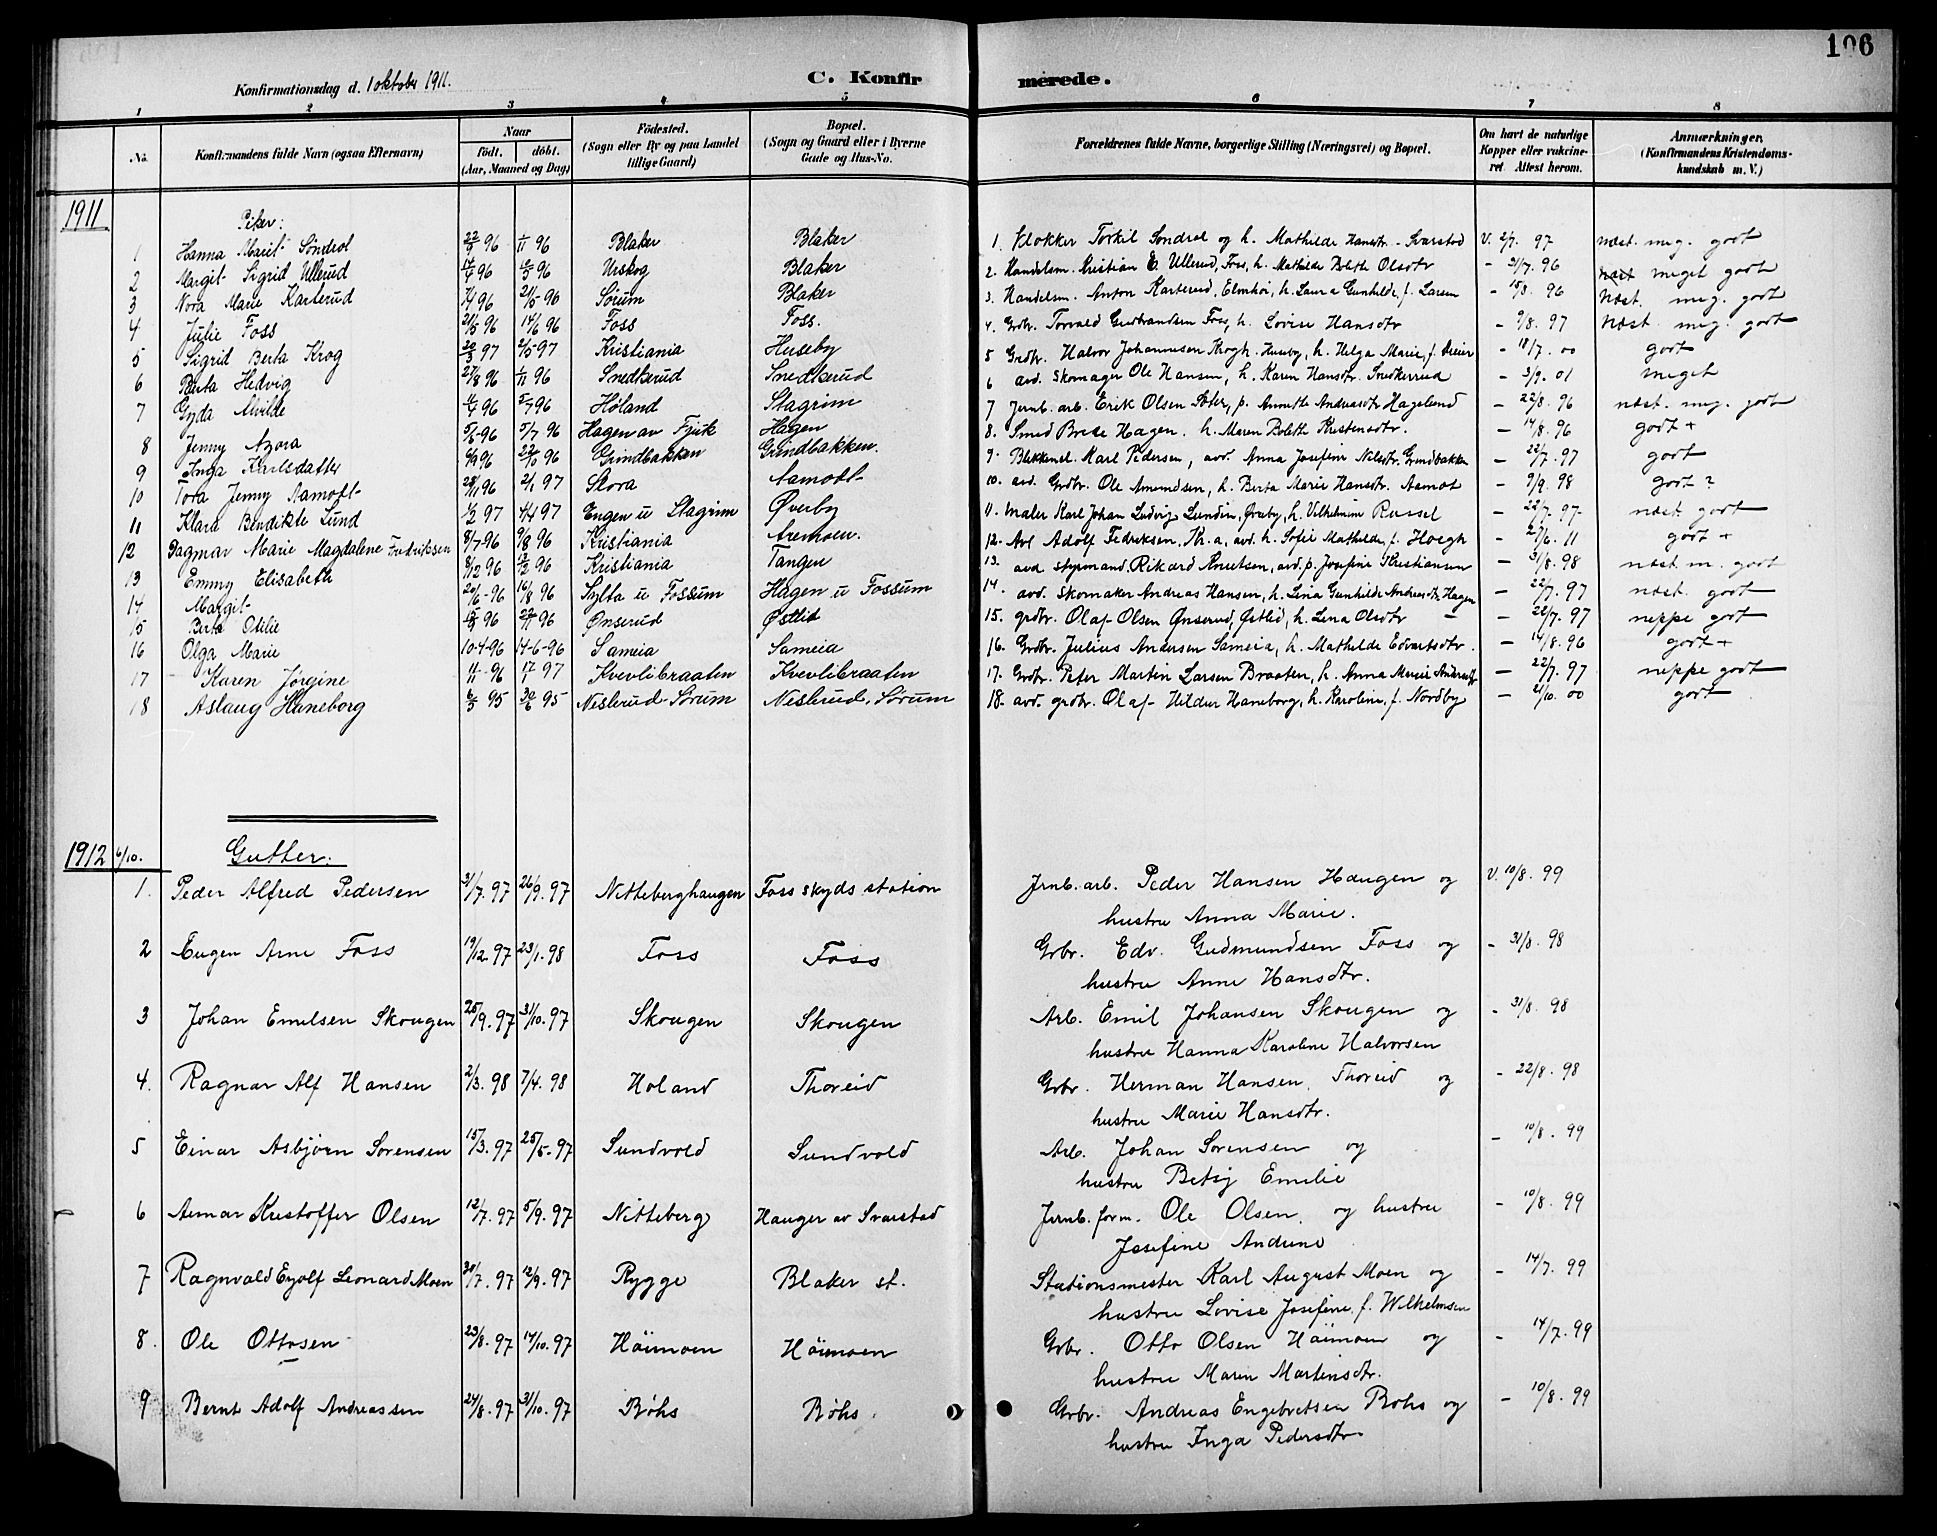 106
Konfirmationsdag d. 1 oktober 1911.
C. Konfirmerede.
1 2 3 4 5 6 7 8
No. Konfirmandens fulde Navn (ogsaa Efternavn) Naar födt. döbt. (Aar, Maaned og Dag) Födested. (Sogn eller By og paa Landet tillige Gaard) Bopæl. (Sogn og Gaard eller i Byerne Gade og Hus-No. Forældrenes fulde Navne, borgerlige Stilling (Næringsvei) og Bopæl. Om havt de naturlige Kopper eller vakcineret Attest herom. Anmærkninger, (Konfirmandens Kristendomskundskab m. V.)
1911
Piker:
1 Hanna Marit Söndrol 22/9 96 1/11 96 Blaker Blaker 1. Klokker Torkil Sondrol og h. Mathilde Hansdtr. Svarstad V. 2/7. 97 næst. meg. godt
2 Margit Sigrid Ullerud 96 96 Urskog Blaker 2. Handelsm. Kristian E. Ullerud, Foss, h. Mathilde Bolethe Olsdtr - 21/7. 96 meget godt
3 Nora Marie Karterud 96 21/5 96 Sørum Blaker 3. Handelsm. Anton Karterud, Elvehöi, h. Laura Gunhilde, f. Larsen - 15/8 96 Næst. meg. godt
4 Julie Foss 21/5 96 14/6 96 Foss Foss. 4. Grdbr. Torvald Gudbrandsen Foss, h. Lovise Hansdtr - 9/8. 97 Næst. meg. godt
5 Sigrid Berta Krog 97 97 Kristiania Huseby 5 Grdbr. Halvor Johannesen Krogh. Huseby, h. Helga Marie, f. - 18/7. 00 godt
6 Berta Hedvig 27/8 96 1/11 96 Snedkerud Snedkerud 6 avd. Skomager Ole Hansen, h. Karen Hansdtr. Snedkerud - 3/9. 01 meget
7 Gyda Alvilde 96 5/7 96 Høland Stagrim 7 Jernb. arb. Erik Olsen Sæter, p. Annette Andreasdtr Hagelund - 22/8. 96 næst. meg. godt
8 Jenny Azora 5/6-96 5/7 96 Hagen av Fjuk Hagen 8. Smed Brede Hagen. h. Maren Boleth Kristensdtr. - 14/8. 96 godt +
9 Inga Karlsdatter 96 96 Grindbakken Grindbakken. 9. Blikkensl. Karl Pedersen, avd. Anna Josefine Nilsdtr. Grindbakken - 22/7. 97 godt
10 Tora Jenny Aamodt 28/11 96 2/1 97 Slora Aamodt 10. avd. Grdbr. Ole Amundsen, h. Berta Marie Hansdtr. Aamot - 9/9. 98 godt ?
11 Klara Bendikte Lund 97 97 Engen u Stagrim Øverby 11. Maler Karl Johan Ludvig Lundin, Øverby, h. Vilhelmine Russel - 22/7. 97 næst. godt
12 Dagmar Marie Magdalene Fredriksen 8/7-96 9/8 96 Kristiania Aremoen. 12. Arb. Adolf Fredriksen, Kr.a, avd. h. Sofie Mathilde, f. Høegh - 27/6. 11 godt +
13 Emmy Elisabeth 8/12 96 96 Kristiania Tangen 13. avd styrmand. Rikard Knutsen, avd. p. Josefine Kristiansen - 31/8. 98 næst. m. godt
14 Margit 26/6-96 16/8 96 Sylta u Fossum Hagen u Fossum 14. avd. Skomaker Andreas Hansen, h. Lina Gunhilde Andreasdtr. Hagen - 22/7. 97 næst. godt
15 Berta Otilie 96 22/11 96 Ønserud Østlid 15. grdbr. Olaf Olsen Ønserud, Østlid, h. Lena Olsdtr - 22/7. 97 neppe godt
16 Olga Marie 10-4-96 14-6-96 Sameia Sameia 16. Grdbr. Julius Andersen Sameia, h. Mathilde Edvartsdtr. - 14/8. 96 godt +
17 Karen Jörgine 11-96 17/1 97 Kvevlibraaten Kvevlibraaten 17. Grdbr. Peter Martin Larsen Braaten, h. Anna Marie Andersdtr - 22/7. 97 neppe godt
18 Aslaug Haneborg 6/5 95 30/6 95 Neslerud-Sørum Neslerud, Sørum 18. avd. grdbr. Olaf Hildur Haneborg, h. Karoline, f. Nordby - 21/10. 00 godt
1912 6/10. Gutter:
1. Peder Alfred Pedersen 31/7. 97 26/9. 97 Nitteberghaugen Foss skyds station Jrnb. arb. Peder Hansen Haugen og V. 10/8. 99
hustru Anna Marie.
2 Eugen Arne Foss 19/12. 97 23/1. 98 Foss Foss Grbr. Edv. Gudmundsen Foss og - 31/8. 98
hustru Anne Hansdtr.
3 Johan Emilsen Skougen 25/9. 97 31/10. 97 Skougen Skougen Arb. Emil Johansen Skougen og - 31/8. 98
hustru Hanna Karoline Halvorsen
4. Ragnar Alf Hansen 2/3. 98 7/4. 98 Holand Thoreid Grbr. Herman Hansen, Thoreid og - 22/8. 98
hustru Marie Hansdtr.
5 Einar Asbjörn Sorensen 15/3. 97 25/5-97 Sundvold Sundvold Arb. Johan Sorensen og - 10/8. 99
hustru Betsy Emilie
6 Aimar Kristoffer Olsen 12/7. 97 5/9. 97 Nitteberg Hauger av Svarstad Jernb. form. Ole Olsen, og hustru - 10/8. 99
Josefine Andrine
7 Ragnvald Eyolf Leonard Moen 30/7. 97 12/9. 97 Rygge Blaker st. Stationsmester Karl August Moen og - 14/7. 99
hustru Lovise Josefine, f. Wilhelmsen
8. Ole Ottosen 23/8. 97 17/10. 97 Höimoen Höimoen Grbr. Otto Olsen Höimoen og - 14/7. 99
hustru Maren Martinsdtr.
9 Bernt Adolf Andreassen 24/8. 97 31/10. 97 Röhs Röhs. Grbr. Andreas Engebretsen Röhs og - 10/8. 99
hustru Inga Pedersdtr.